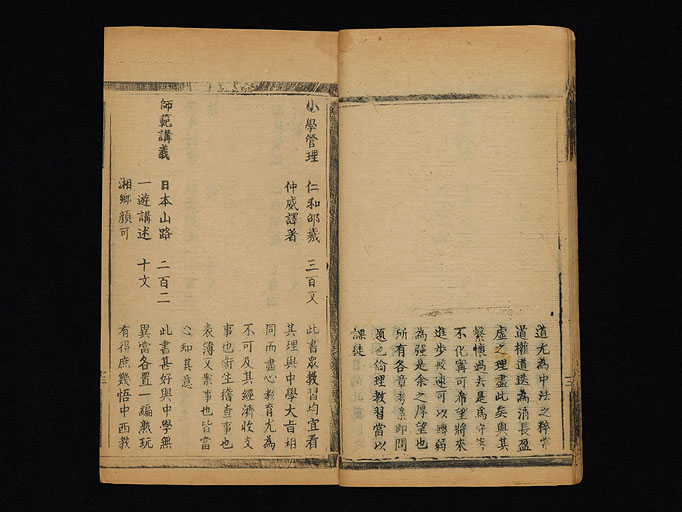 道尤為中法之粹
道權道迭為消長盈
虛之理盡此矣與其
繫懷過去是為守舊
不化寧可希望將來
進步較速可以轉弱
為強是余之厚望也
所有各章
題也倫理教習當以
課徒
小學管理 仁和邵羲 三百文 此書眾教習均宜看
仲威譯著 其理與中學大旨相
同而盡心教育尤為
不可及其經濟收支
事也衛生稽查事也
表簿文案事也皆當
知其意
師範講義 日本山路 二百二 此書甚好與中學無
一遊講述 十文 異當各置一編熟玩
湘鄉顏可 有得庶幾悟中西教
三